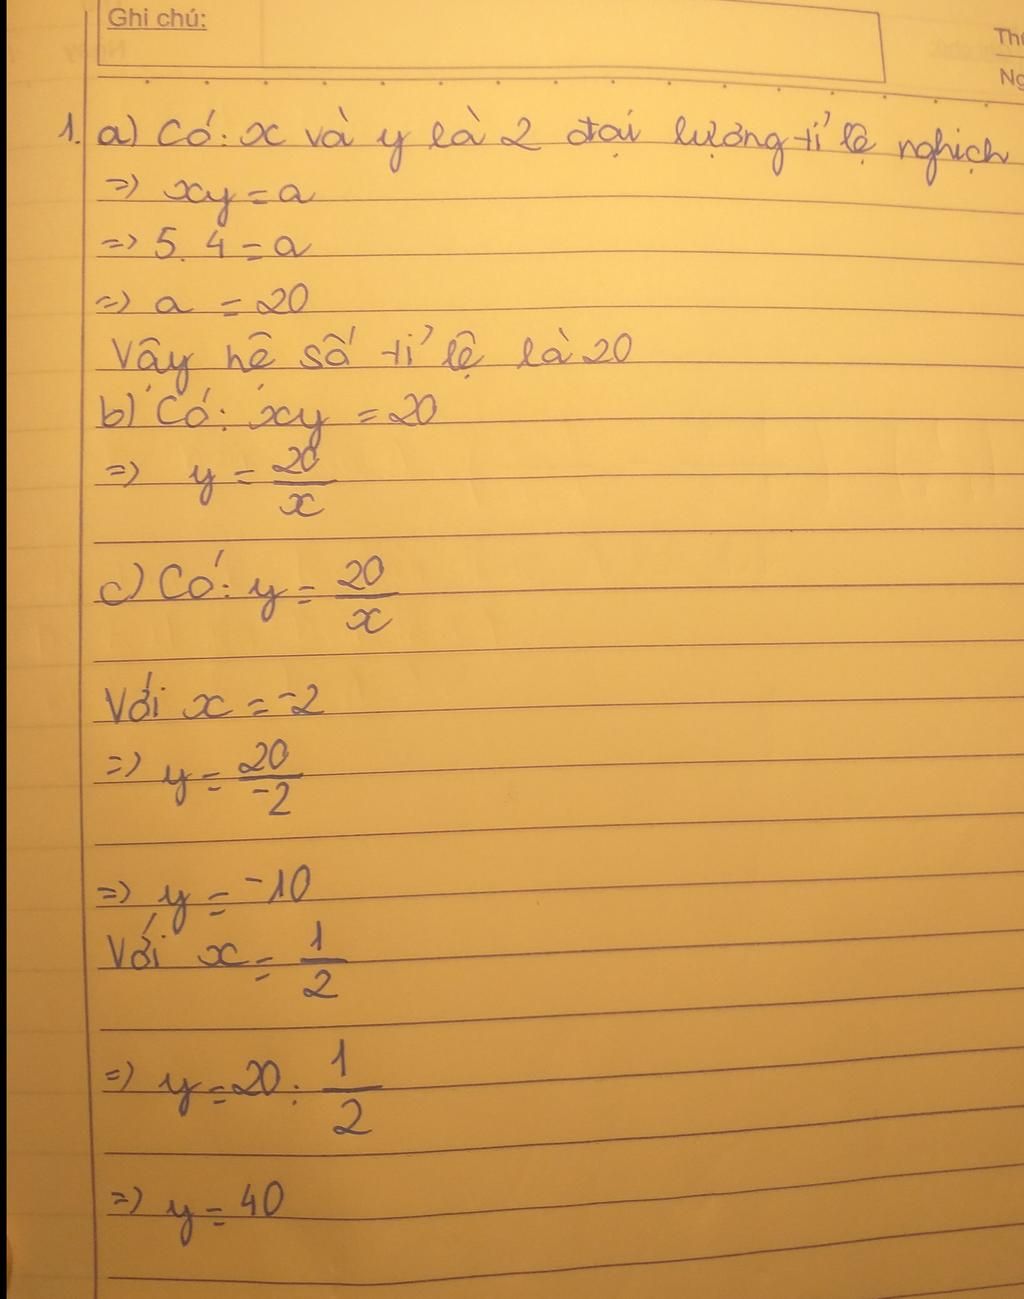 Ghi chú:
Thứ
Ng
1. a) Có: x và y là 2 đại lượng tỉ lệ nghịch
=> xy = a
=> 5. 4 = a
=> a = 20
Vậy hệ số tỉ lệ là 20
b) Có: xy = 20
=> y = 20/x
c) Có: y = 20/x
Với x = -2
=> y = 20/-2
=> y = -10
Với x = 1/2
=> y = 20 : 1/2
=> y = 40